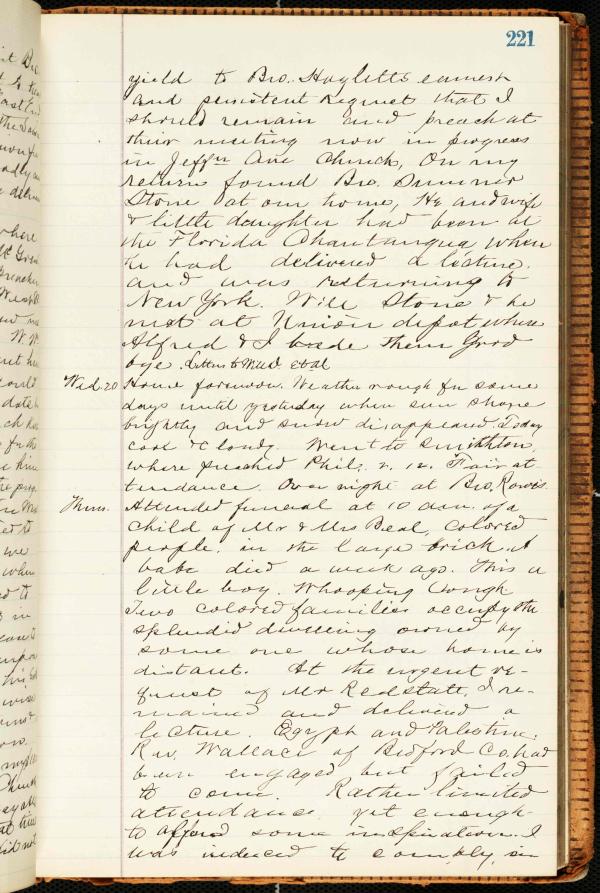 221
yield to Bro. Hayletts earnest
and persistent request that I
should remain and preach at
their meeting now in progress
in Jeffn Ave Church, On my
return found Bro. Sumner
Stone at our home, He and wife
& little daughter had been at
the Florida Chautauqua when
he had delivered a lecture.
and was returning to
New York. Will Stone & he
met at Union depot where
Alfred & I bade them Good
bye. Letters to Will et al
Wed. 20 Home forenoon. Weather rough for some
days until yesterday when sun shone
brightly and snow disappeared. Today
cool & cloudy. Went to Smithton,
where preached Phil. 2, 12. Fair at-
tendance. Over night at Bro. Rowes
Thurs. Attended funeral at 10 a.m. of a
child of Mr & Mrs Beal, colored
people. in the large brick. A
babe died a week ago. This a
little boy. Whooping Cough
Two colored families occupy the
splendid dwelling owned by
some one whose home is
distant. At the urgent re-
quest of Mr Redstatt, I re-
mained and delivered a
lecture. Egypt and Palestine.
Rev. Wallace of Bedford Co. had
been engaged but failed
to come. Rather limited
attendance yet enough
to afford some inspiration. I
was induced to comply, in